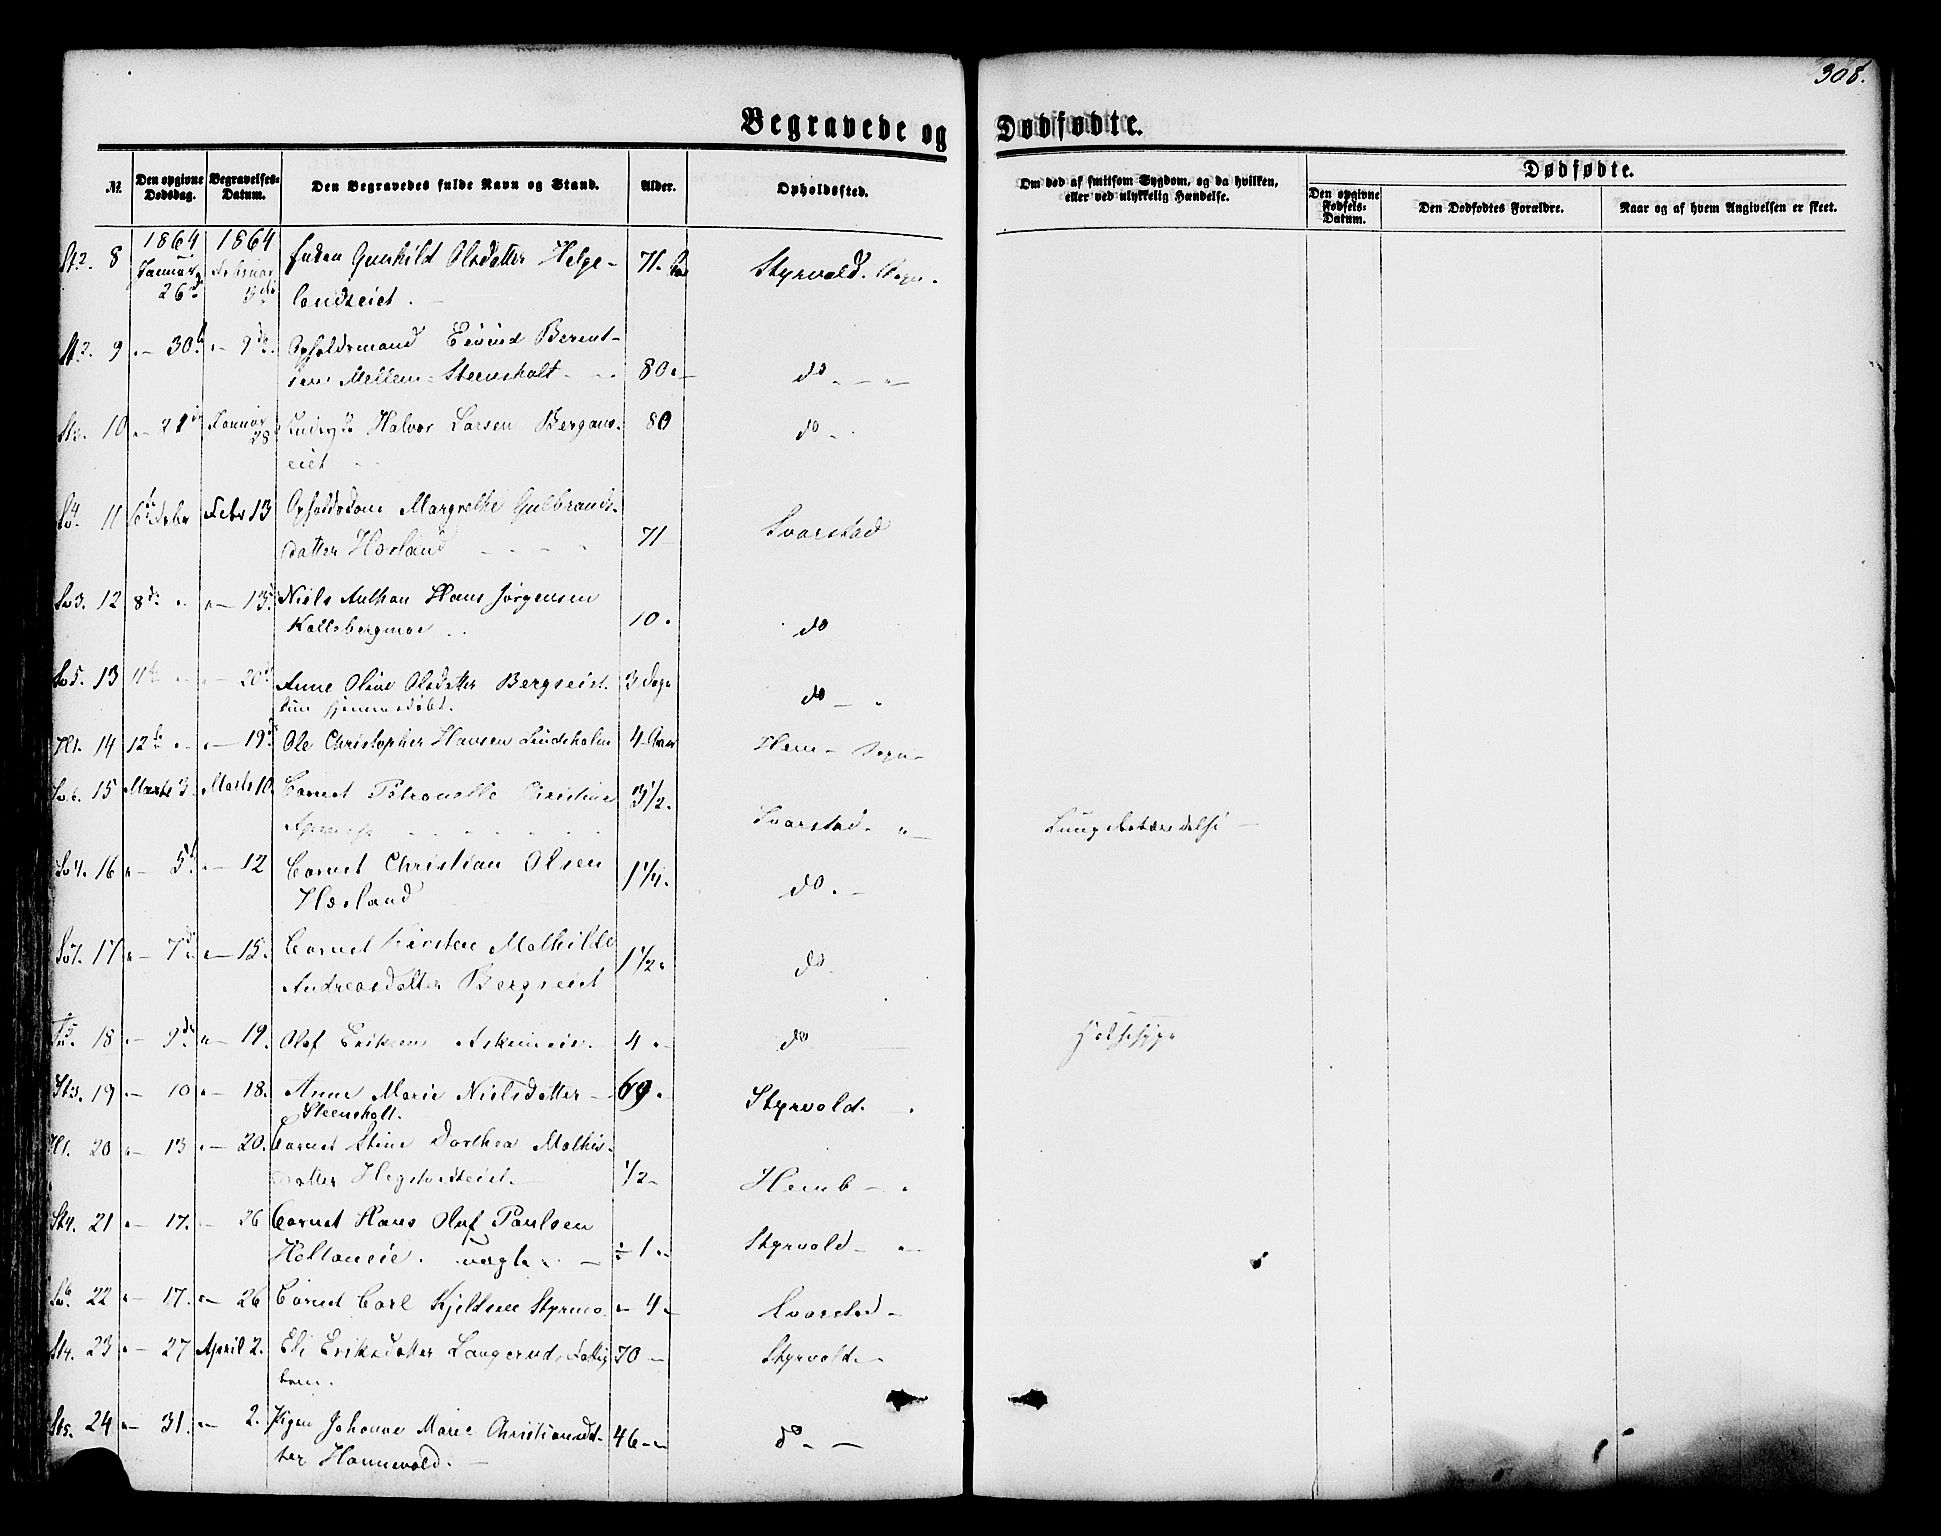 308.
Begravede og Dødfødte.
№ Den opgivne Dødsdag. Begravelses-Datum. Den Begravedes fulde Navn og Stand. Alder. Opholdssted. Om død af smitsom Sygdom, og da hvilken, eller ved ulykkelig Hændelse. Dødfødte.
Den opgivne Fødsels-Datum. Den Dødfødtes Forældre. Naar og af hvem Angivelsen er skeet.
1864 1864
St2. 8 Januar 26de Februar Enken Gunhild Olsdatter Helge- 71. Styrvold. Sogn.
landseiet.
9 " — 30te " — 9de. Opholdsmand Eivind Berent-
sen Mellem-Steensholt 80 " do. — "
10 " — 21de Januar 28 Halvor Larsen Bergans- 80 do
eiet
Sv4. 11 Febr Febr 13 Opholdskone Margrethe Gulbrands-
datter Hørland 71 Svarstad
Sv3. 12 8de " " — 13de. Niels Anthon Hans Jørgensen
Kallsbergmoe 10. do
Sv5. 13 11te " " — 20de Anne Oline Olsdatter Bergseiet. 3 Dage do — "
hjemmedøbt.
H1. 14 12te " " — 19de Ole Christopher Hansen Lindsholm 4 Aar Hem — Sogn
Sv6. 15 Marts 3. Marts 10. Barnet Petronelle Christine 3½.
Svarstad. " Lungebetændelse —
16 " — 5te " — 12 Barnet Christian Olsen
Hørland 1¼. do. —
Sv7. 17 " — 7de. " — 15. Barnet Kirsten Mathilde
Andreasdatter Bergseiet 1½. do.
18 " — 9de " — 19. Olaf Eriksen Askimeie. 4 " do Halssyge
St3. 19 " — 10 " — 18. Anne Marie Nielsdatter — 69. Styrvold. "
Steensholt.
H1. 20 " — 13 " — 20. Barnet Stine Dorthea Mathis-
datter Hegstadeiet. ½ Hemb — "
St4. 21 " — 17. — 26 Barnet Hans Olaf Paulsen
Holtaneie. uægte. — ÷ 1. Styrvold — "
22 " — 17. " — 26 Barnet Carl Kjeldsen Styrmo. " 4 " Svarstad —
St4. 23 " — 27 April 2. Eli Eriksdatter Langerud, Fattig 70 — Styrvold —
lem.
St5. 24 " — 31. " — 2. Pigen Johanne Marie Christiansdat-
ter Hannevold. — 46 — do — —